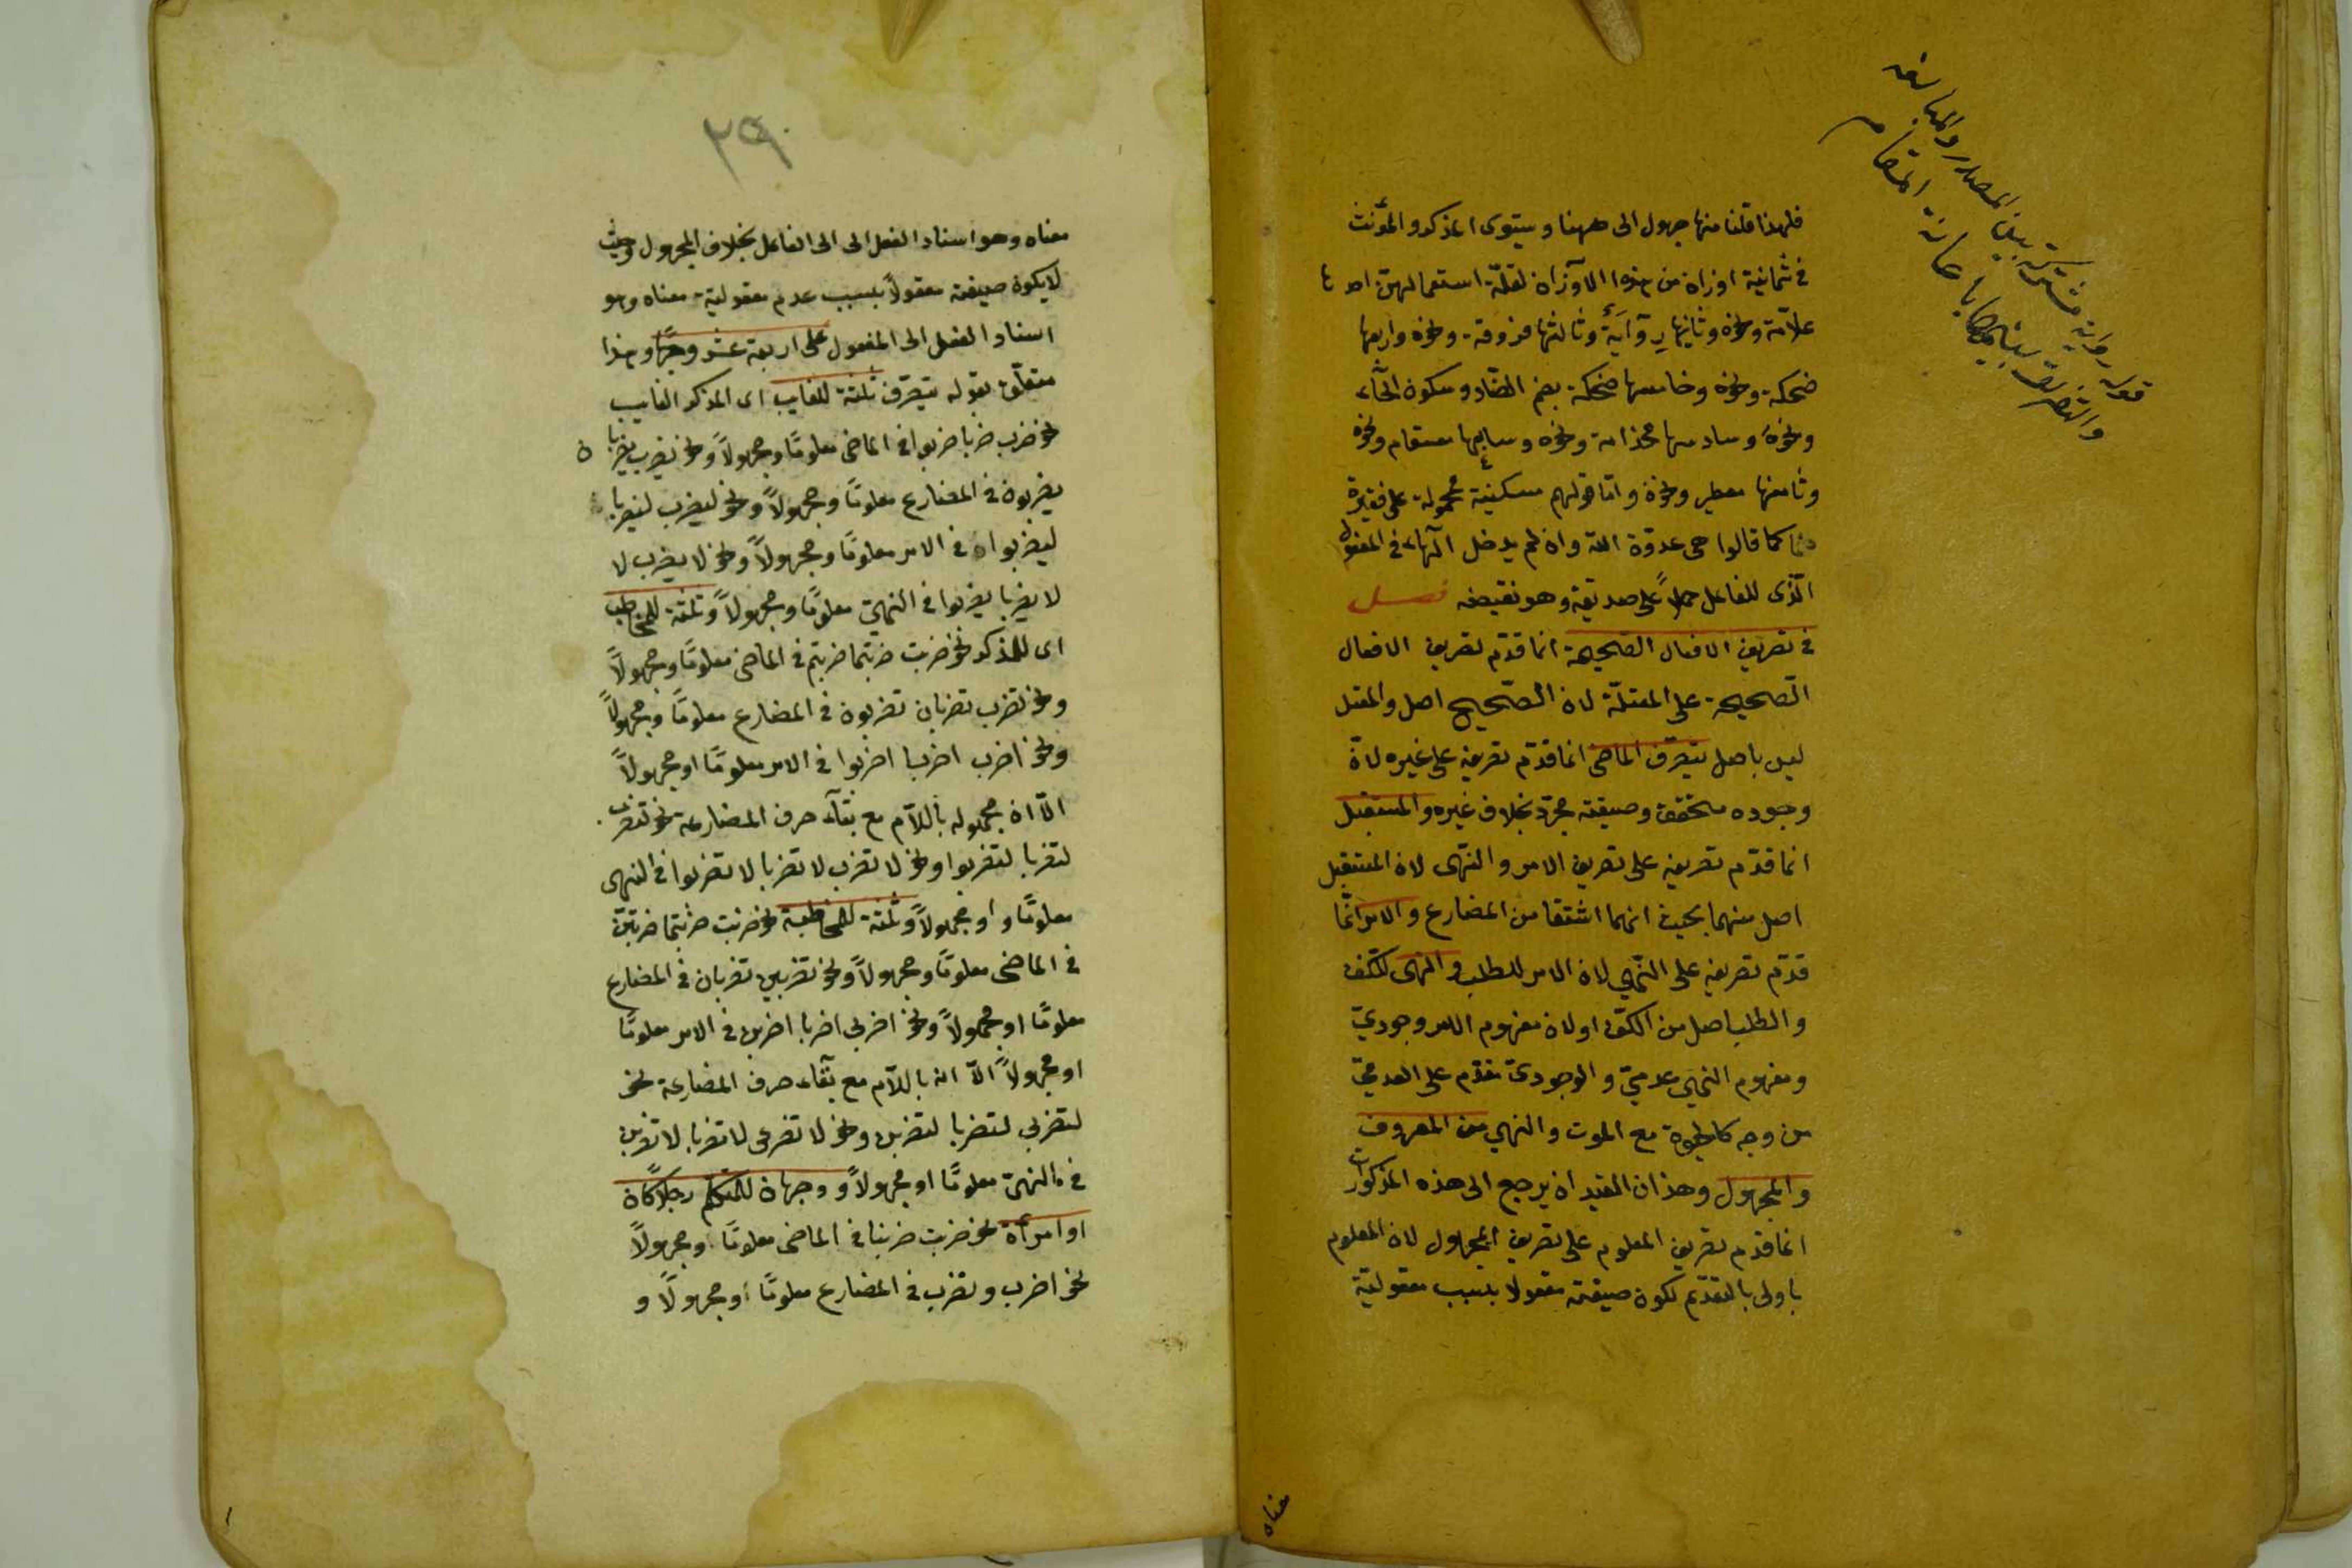 فلهذا قلنا منها جهول الى ههنا ويستوى المذكر والمؤنث
فى ثمانية اوزان من هذه الاوزان لقلّة استعمالهنّ احدها
علاّمة ونحوه وثانيها روايَة وثالثها فروقة ونحوه ورابعها
ضحكة ونحوه وخامسها ضحكة بضم الضّاد وسكون الحاء
ونحوه وسادسها مجذامة ونحوه وسابعها مسقام ونحوه
وثامنها معطير ونحوه وامّا قولهم مسكينة محمولة على فقيرة
كما قالوا هى عدوّة اللّه وان لم يدخل الهاء فى المفعول
الّذى للفاعل حملاً على صديقة وهو نقيضه فصل
فى تصريف الافعال الصّحيحة انما قدّم تصريف الافعال
الصّحيحة على المعتلّة لان الصّحيح اصل والمعتل
ليس باصل يتصرّف الماضى انما قدّم تصريفه على غيره لانّ
وجوده متحقق وصيغته مجرّد بخلاف غيره والمستقبل
انما قدّم تصريفه على تصريف الامر والنّهى لان المستقبل
اصل منهما بحيث انهما اشتقا من المضارع والامر انّما
قدّم تصريفه على النّهي لان الامر للطلب والنهى للكفّ
والطلب اصل من الكفّ اولان مفهوم الامر وجوديّ
ومفهوم النّهي عدميّ والوجودىّ مقدّم على العدميّ
من وجه كالحيوة مع الموت والنهي من المعروف
والمجهول وهذان القيدان يرجع الى هذه المذكورات
انما قدم تصريف المعلوم على تصريف المجهول لان المعلوم
باولى بالتقدّم لكون صيغته معقولا بسبب معقوليّة
قوله رواية مشتركة بين المصدر والمبالغة
والتفريق بينهما باعانة المقام
معناه
٢٩٠
معناه وهو اسناد الفعل الى الى الفاعل بخلاف المجهول وحيث
لايكون صيغته معقولاً بسبب عدم معقولية معناه وهو
اسناد الفعل الى المفعول على اربعة عشر وجهًا وهذا
متعلّق بقوله يتصرّف ثلثة للغايب اى المذكر الغايب
نحو ضرب ضربا ضربوا فى الماضى معلومًا ومجهولاً ونحو يضرب يضربان
يضربون فى المضارع معلومًا ومجهولاً ونحو ليضرب ليضربا
ليضربوا فى الامر معلومًا ومجهولاً ونحو لا يضرب لا
لا يضربا يضربوا فى النهيّ معلومًا ومجهولاً وثلثة للمخاطب
اى للمذكر نحو ضربت ضربتما ضربتم فى الماضى معلومًا ومجهولاً
ونحو تضرب تضربان تضربون فى المضارع معلومًا ومجهولاً
ونحو اضرب اضربا اضربوا فى الامر معلومًا او مجهولاً
الاّ ان مجهوله باللاّم مع بقآء حرف المضارعة نحو لتضرب
لتضربا لتضربوا ونحو لا تضرب لا تضربا لا تضربوا فى النهى
معلومًا و او مجهولاً وثلثة للمخاطبة نحو ضربت ضربتما ضربتنّ
فى الماضى معلومًا ومجهولاً ونحو تضربين تضربان فى المضارع
معلومًا او مجهولاً ونحو اضربى اضربا اضربن فى الامر معلومًا
او مجهولاً الاّ انه باللاّم مع بقآء حرف المضارعة نحو
لتضربى لتضربا لتضربن ونحو لا تضربى لا تضربا لا تضربن
فى النهىّ معلومًا او مجهولاً و وجهان للمتكلم رجلاً كان
او امرأة نحو ضربت ضربنا فى الماضى معلومًا ومجهولاً
نحو اضرب ونضرب فى المضارع معلومًا او مجهولاً و